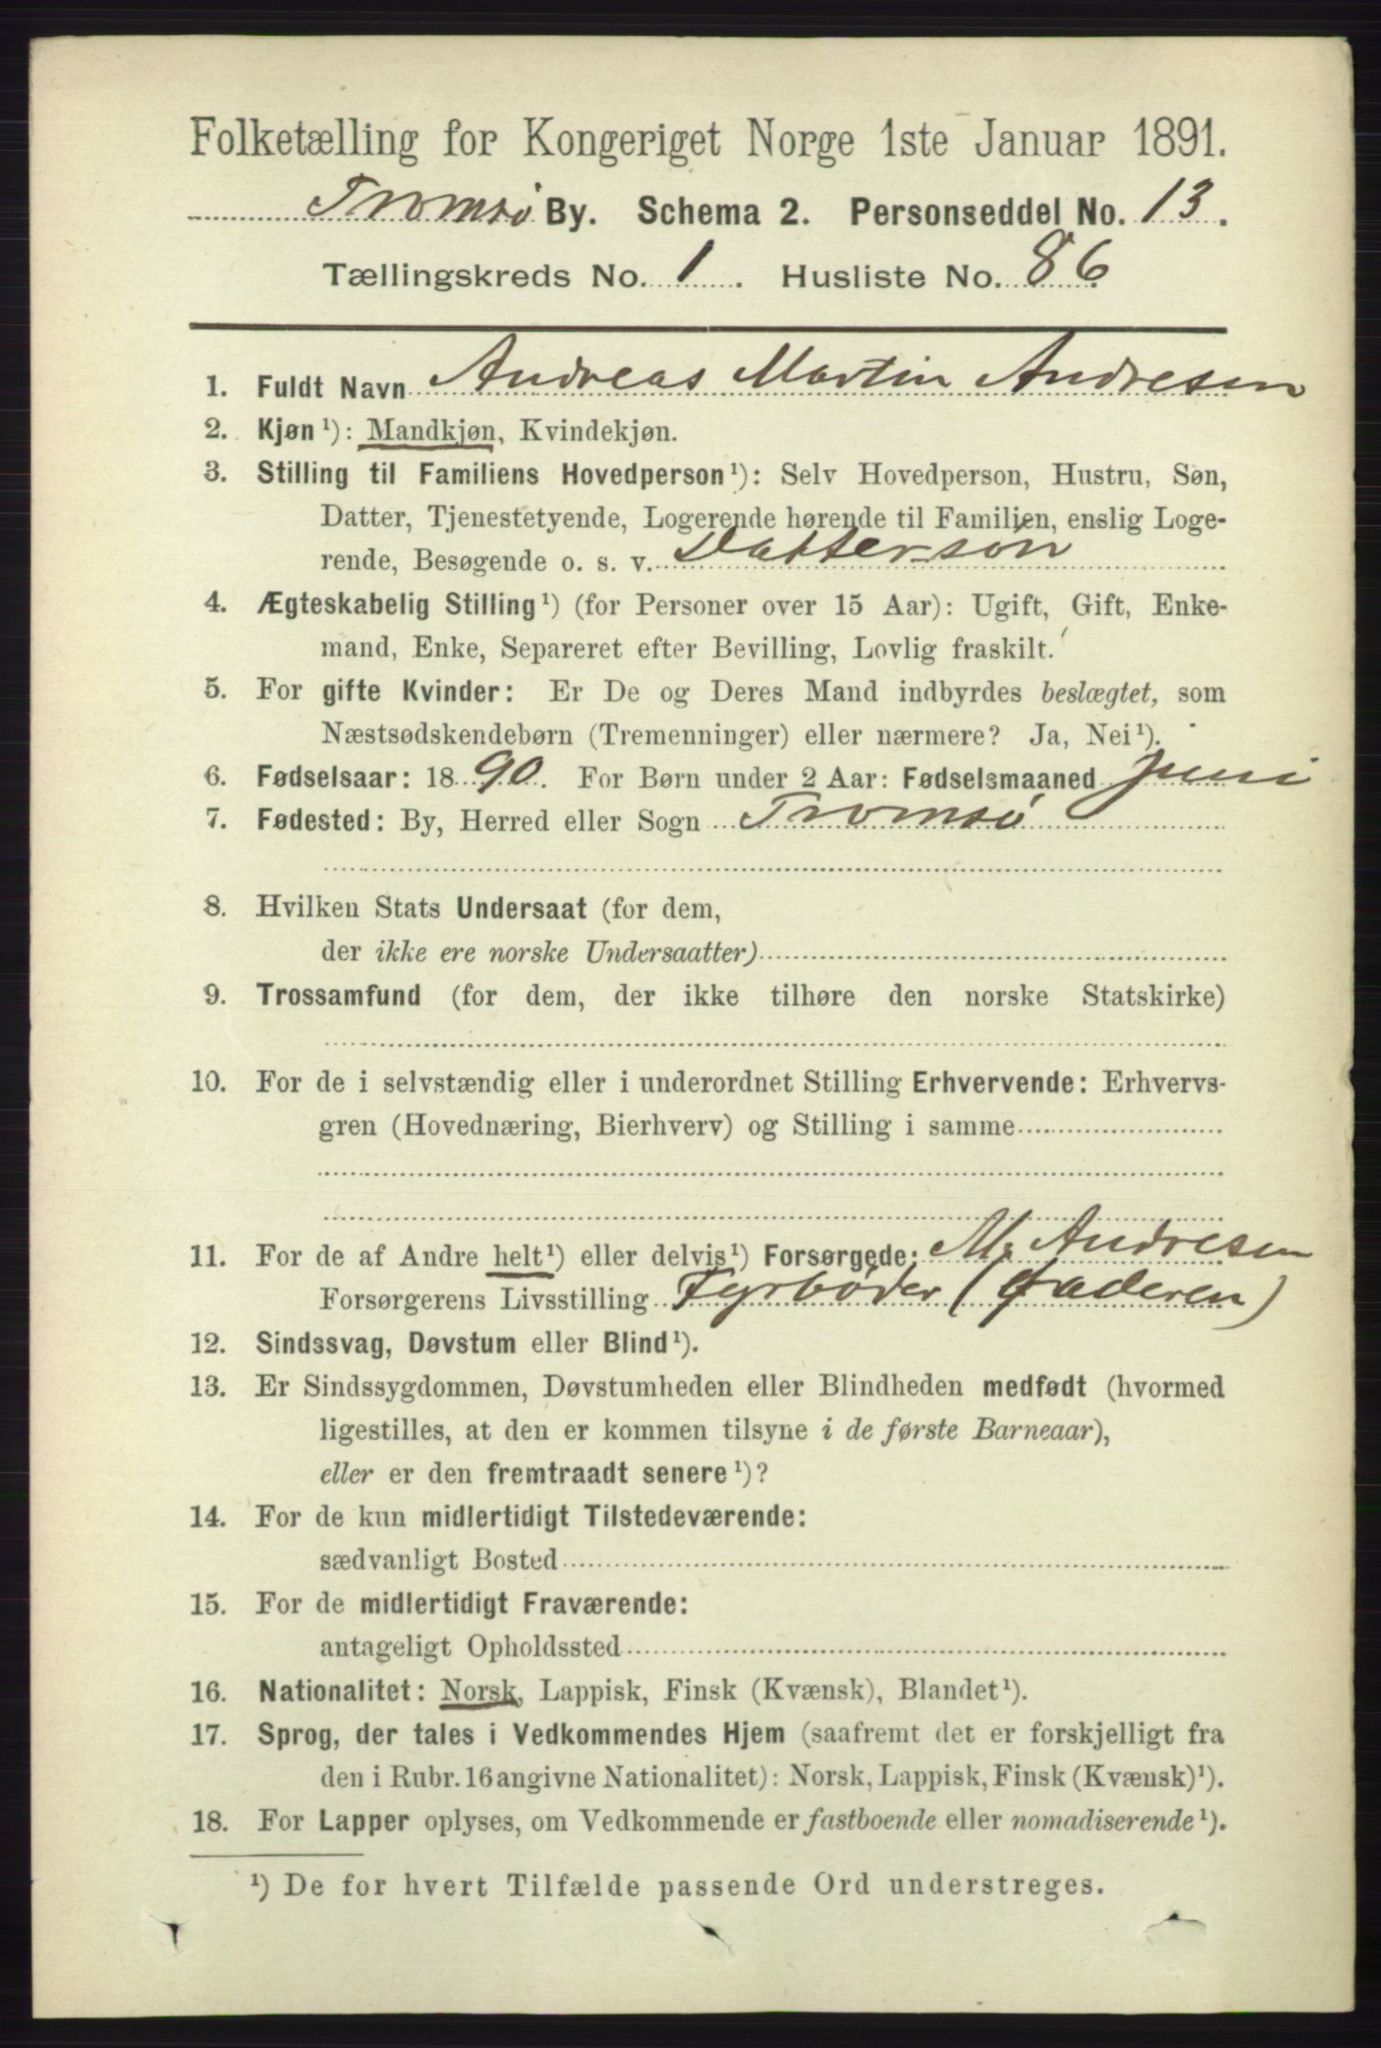 Folketælling for Kongeriget Norge 1ste Januar 1891.
Tromsø By. Schema 2. Personseddel No. 13.
Tællingskreds No. 1. Husliste No. 86
1. Fuldt Navn Andreas Martin Andresen
2. Kjøn¹): Mandkjøn, Kvindekjøn.
3. Stilling til Familiens Hovedperson¹): Selv Hovedperson, Hustru, Søn,
Datter, Tjenestetyende, Logerende hørende til Familien, enslig Loge-
rende, Besøgende o. s. v. Dattersøn
4. Ægteskabelig Stilling¹) (for Personer over 15 Aar): Ugift, Gift, Enke-
mand, Enke, Separeret efter Bevilling, Lovlig fraskilt.
5. For gifte Kvinder: Er De og Deres Mand indbyrdes beslægtet, som
Næstsødskendebørn (Tremenninger) eller nærmere? Ja, Nei¹).
6. Fødselsaar: 1890. For Børn under 2 Aar: Fødselsmaaned Juni
7. Fødested: By, Herred eller Sogn Tromsø
8. Hvilken Stats Undersaat (for dem,
der ikke ere norske Undersaatter)
9. Trossamfund (for dem, der ikke tilhøre den norske Statskirke)
10. For de i selvstændig eller i underordnet Stilling Erhvervende: Erhvervs-
gren (Hovednæring, Bierhverv) og Stilling i samme
11. For de af Andre helt¹) eller delvis¹) Forsørgede: M. Andresen
Forsørgerens Livsstilling Fyrbøder (Faderen)
12. Sindssvag, Døvstum eller Blind¹).
13. Er Sindssygdommen, Døvstumheden eller Blindheden medfødt (hvormed
ligestilles, at den er kommen tilsyne i de første Barneaar),
eller er den fremtraadt senere¹)?
14. For de kun midlertidigt Tilstedeværende:
sædvanligt Bosted
15. For de midlertidigt Fraværende:
antageligt Opholdssted
16. Nationalitet: Norsk, Lappisk, Finsk (Kvænsk), Blandet¹).
17. Sprog, der tales i Vedkommendes Hjem (saafremt det er forskjelligt fra
den i Rubr. 16 angivne Nationalitet): Norsk, Lappisk, Finsk (Kvænsk)¹).
18. For Lapper oplyses, om Vedkommende er fastboende eller nomadiserende¹).
¹) De for hvert Tilfælde passende Ord understreges.